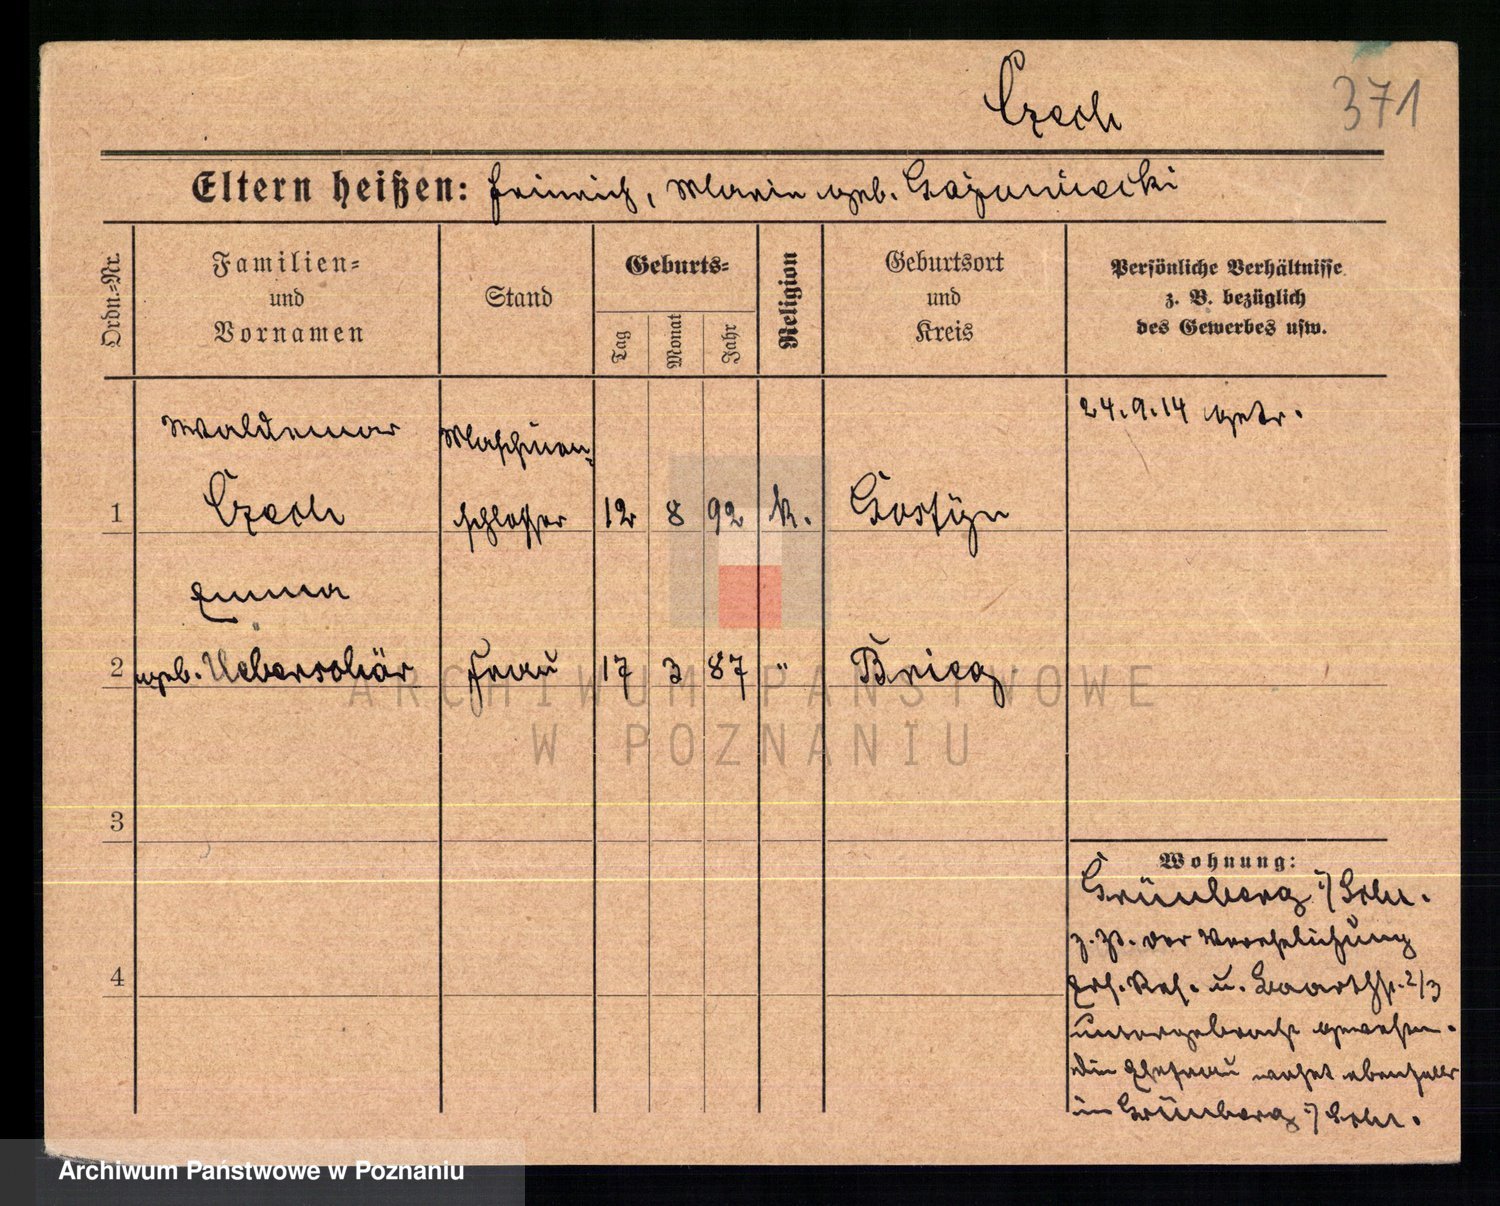 Czech
371
Eltern heißen: Heinrich, Marie geb. Gazowiecki
Ordn.-Nr.
Familien-
und
Vornamen
Stand
Geburts-
Tag
Monat
Jahr
Religion
Geburtsort
und
Kreis
Persönliche Verhältnisse
z. B. bezüglich
des Gewerbes usw.
24.9.14 getr.
Waldemar Maschinen-
1 Czech schlosser 12 8 92 k. Gostyn
Emma
2 geb. Ueberschär Frau 17 3 87 " Brieg
ARCHIWUM PAŃSTWOWE
W POZNANIU
3
4
Wohnung:
Grünberg i/Schl.
z. Zt. der Verehelichung
Ers. Res. u.
untergebracht gewesen.
die Ehefrau wohnt ebenfalls
in Grünberg i/Schl.
Archiwum Państwowe w Poznaniu